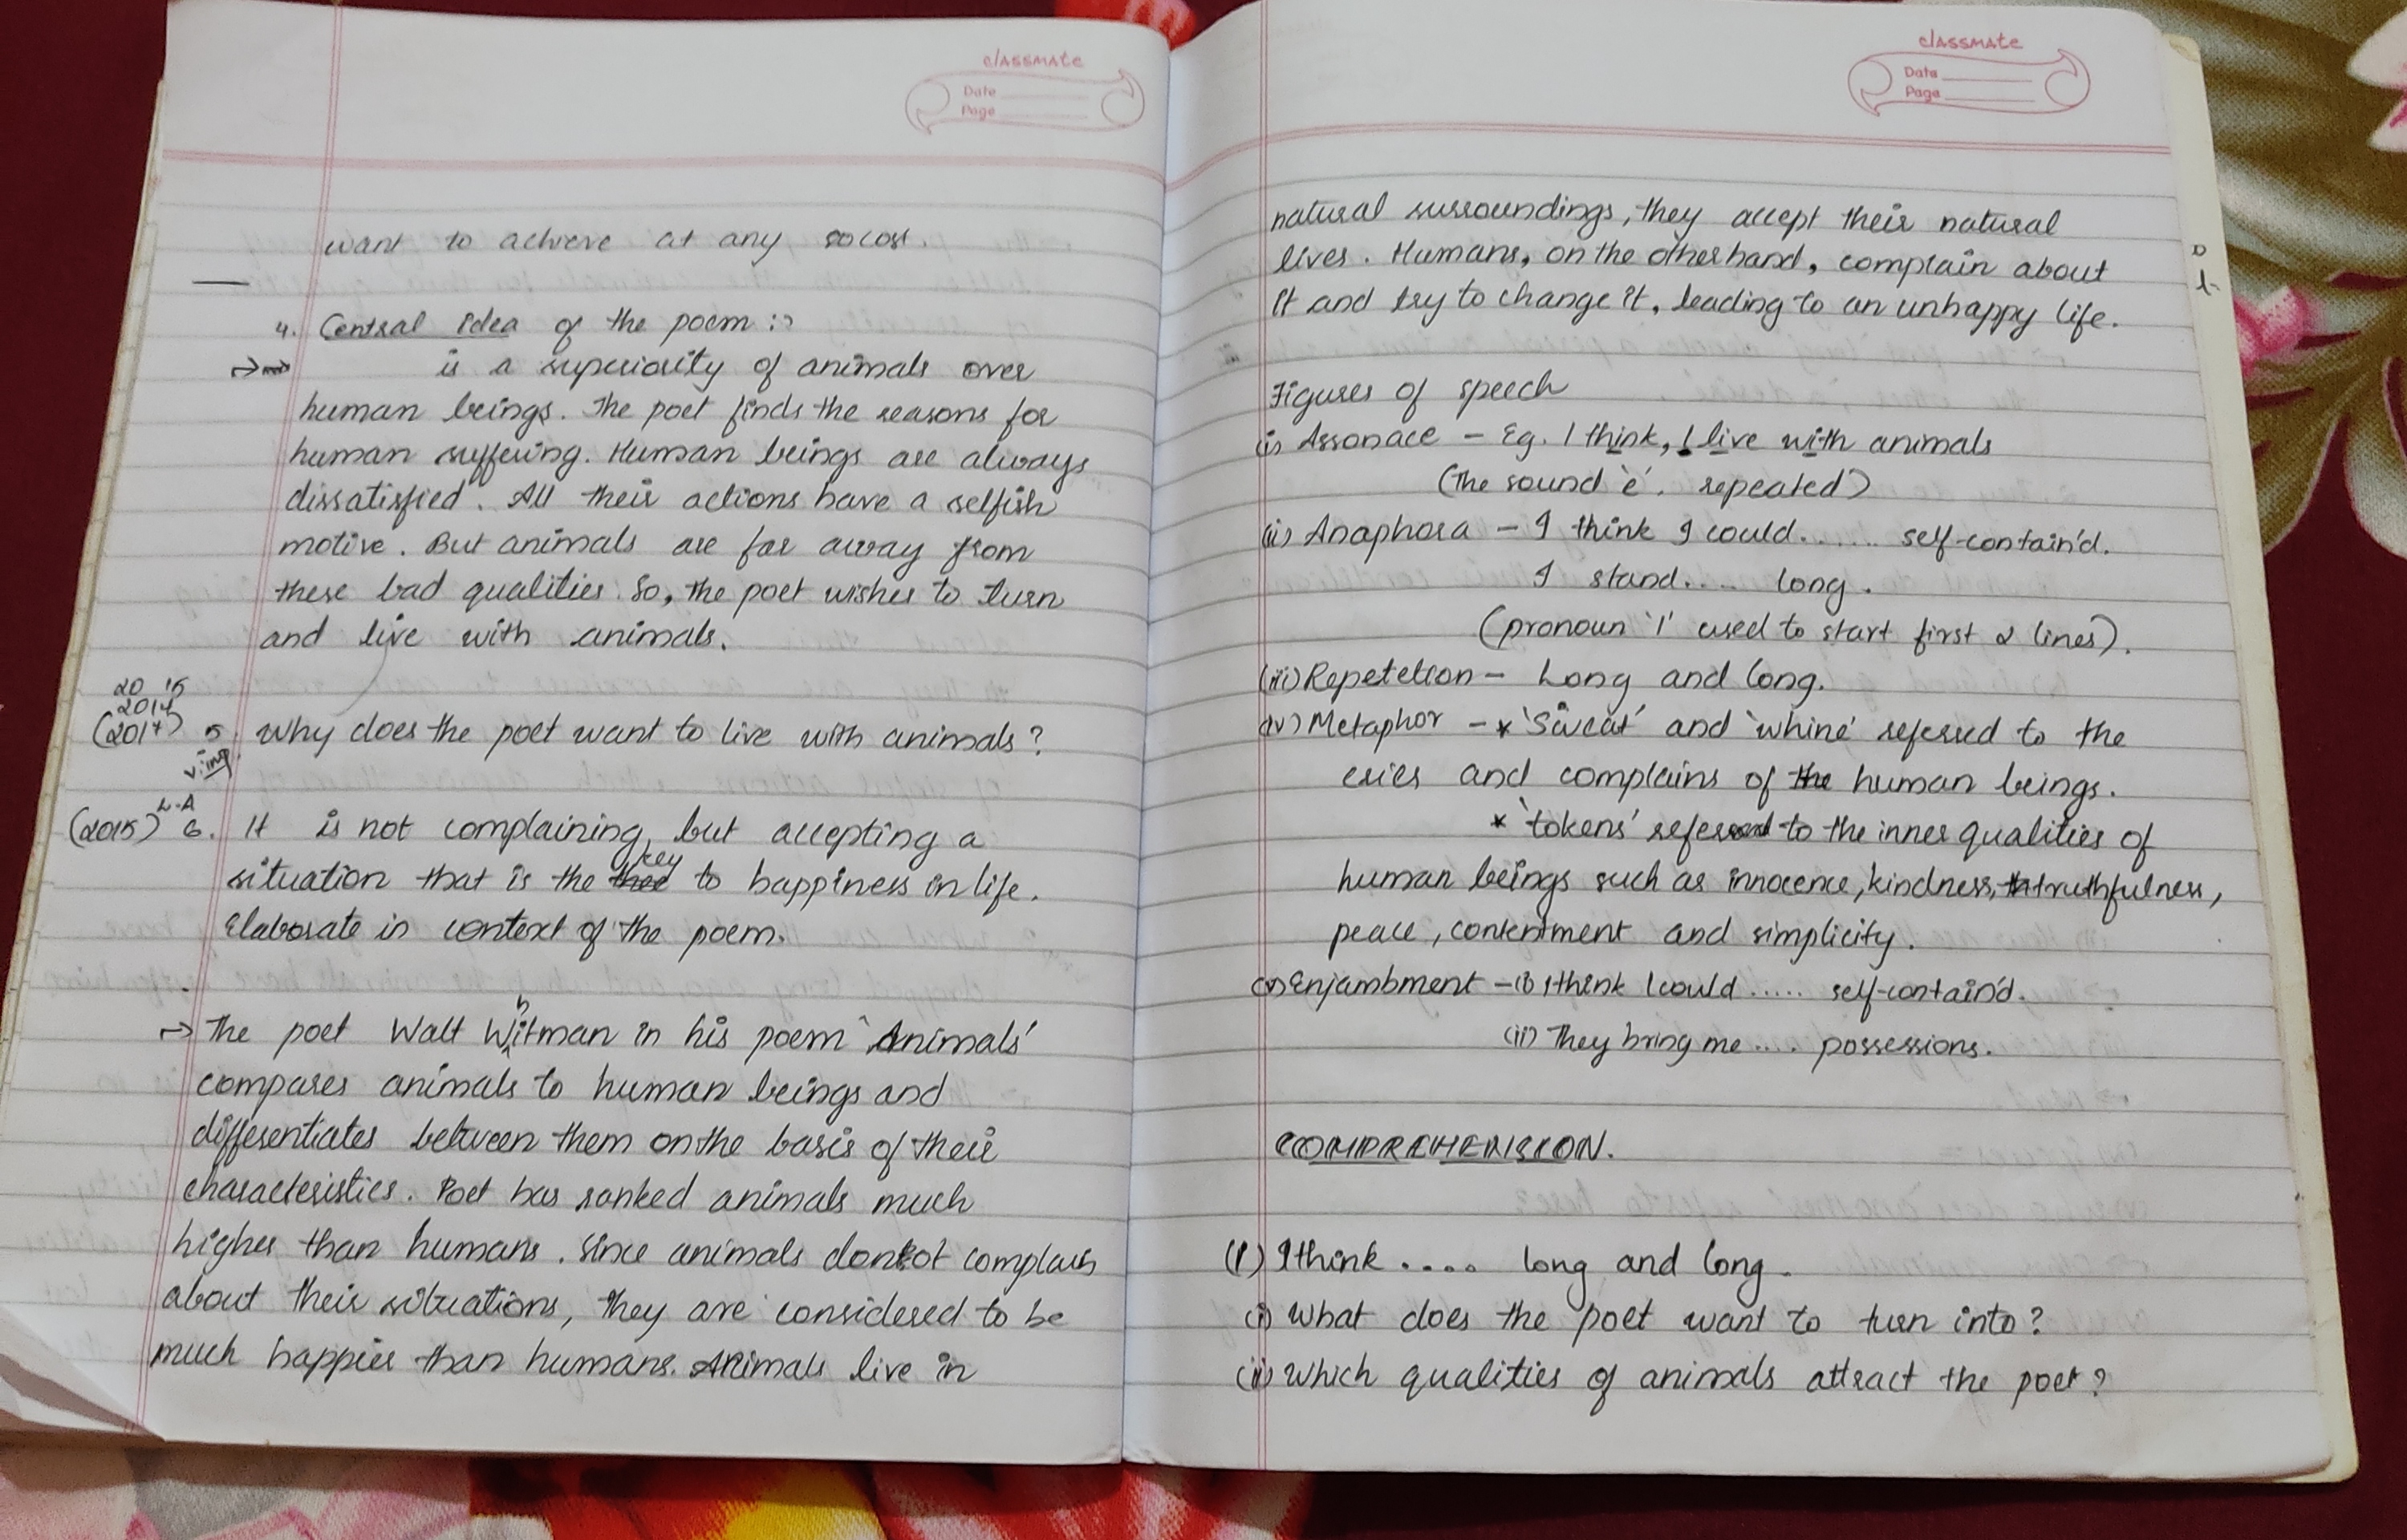 classmate
Date
Page
want to achieve at any cost.
4. Central idea of the poem :-
is a superiority of animals over
human beings. The poet finds the reasons for
human suffering. Human beings are always
dissatisfied. All their actions have a selfish
motive. But animals are far away from
these bad qualities. So, the poet wishes to turn
and live with animals.
20 15
2014
(2017) 5. Why does the poet want to live with animals?
v.imp
L.A
(2015) 6. It is not complaining, but accepting a
situation that is the key to happiness in life.
Elaborate in context of the poem.
→ The poet Walt Whitman in his poem 'Animals'
compares animals to human beings and
differentiates between them on the basis of their
characteristics. Poet has ranked animals much
higher than humans. Since animals donot complain
about their situations, they are considered to be
much happier than humans. Animals live in
classmate
Date
Page
natural surroundings, they accept their natural
lives. Humans, on the other hand, complain about
it and try to change it, leading to an unhappy life.
Figures of speech
(i) Assonace – Eg. I think, I live with animals
(The sound 'e'. repeated)
(ii) Anaphora – I think I could...... self-contain'd.
I stand..... long.
(pronoun 'I' used to start first 2 lines).
(iii) Repetetion – Long and long.
(iv) Metaphor – * 'Sweat' and 'whine' referred to the
cries and complains of the human beings.
* 'tokens' refers to the inner qualities of
human beings such as innocence, kindness, truthfulness,
peace, contentment and simplicity.
(v) Enjambment – (i) I think I could ..... self-contain'd.
(ii) They bring me .... possessions.
COMPREHENISION.
(1) I think .... long and long.
(i) What does the poet want to turn into?
(ii) Which qualities of animals attract the poet?